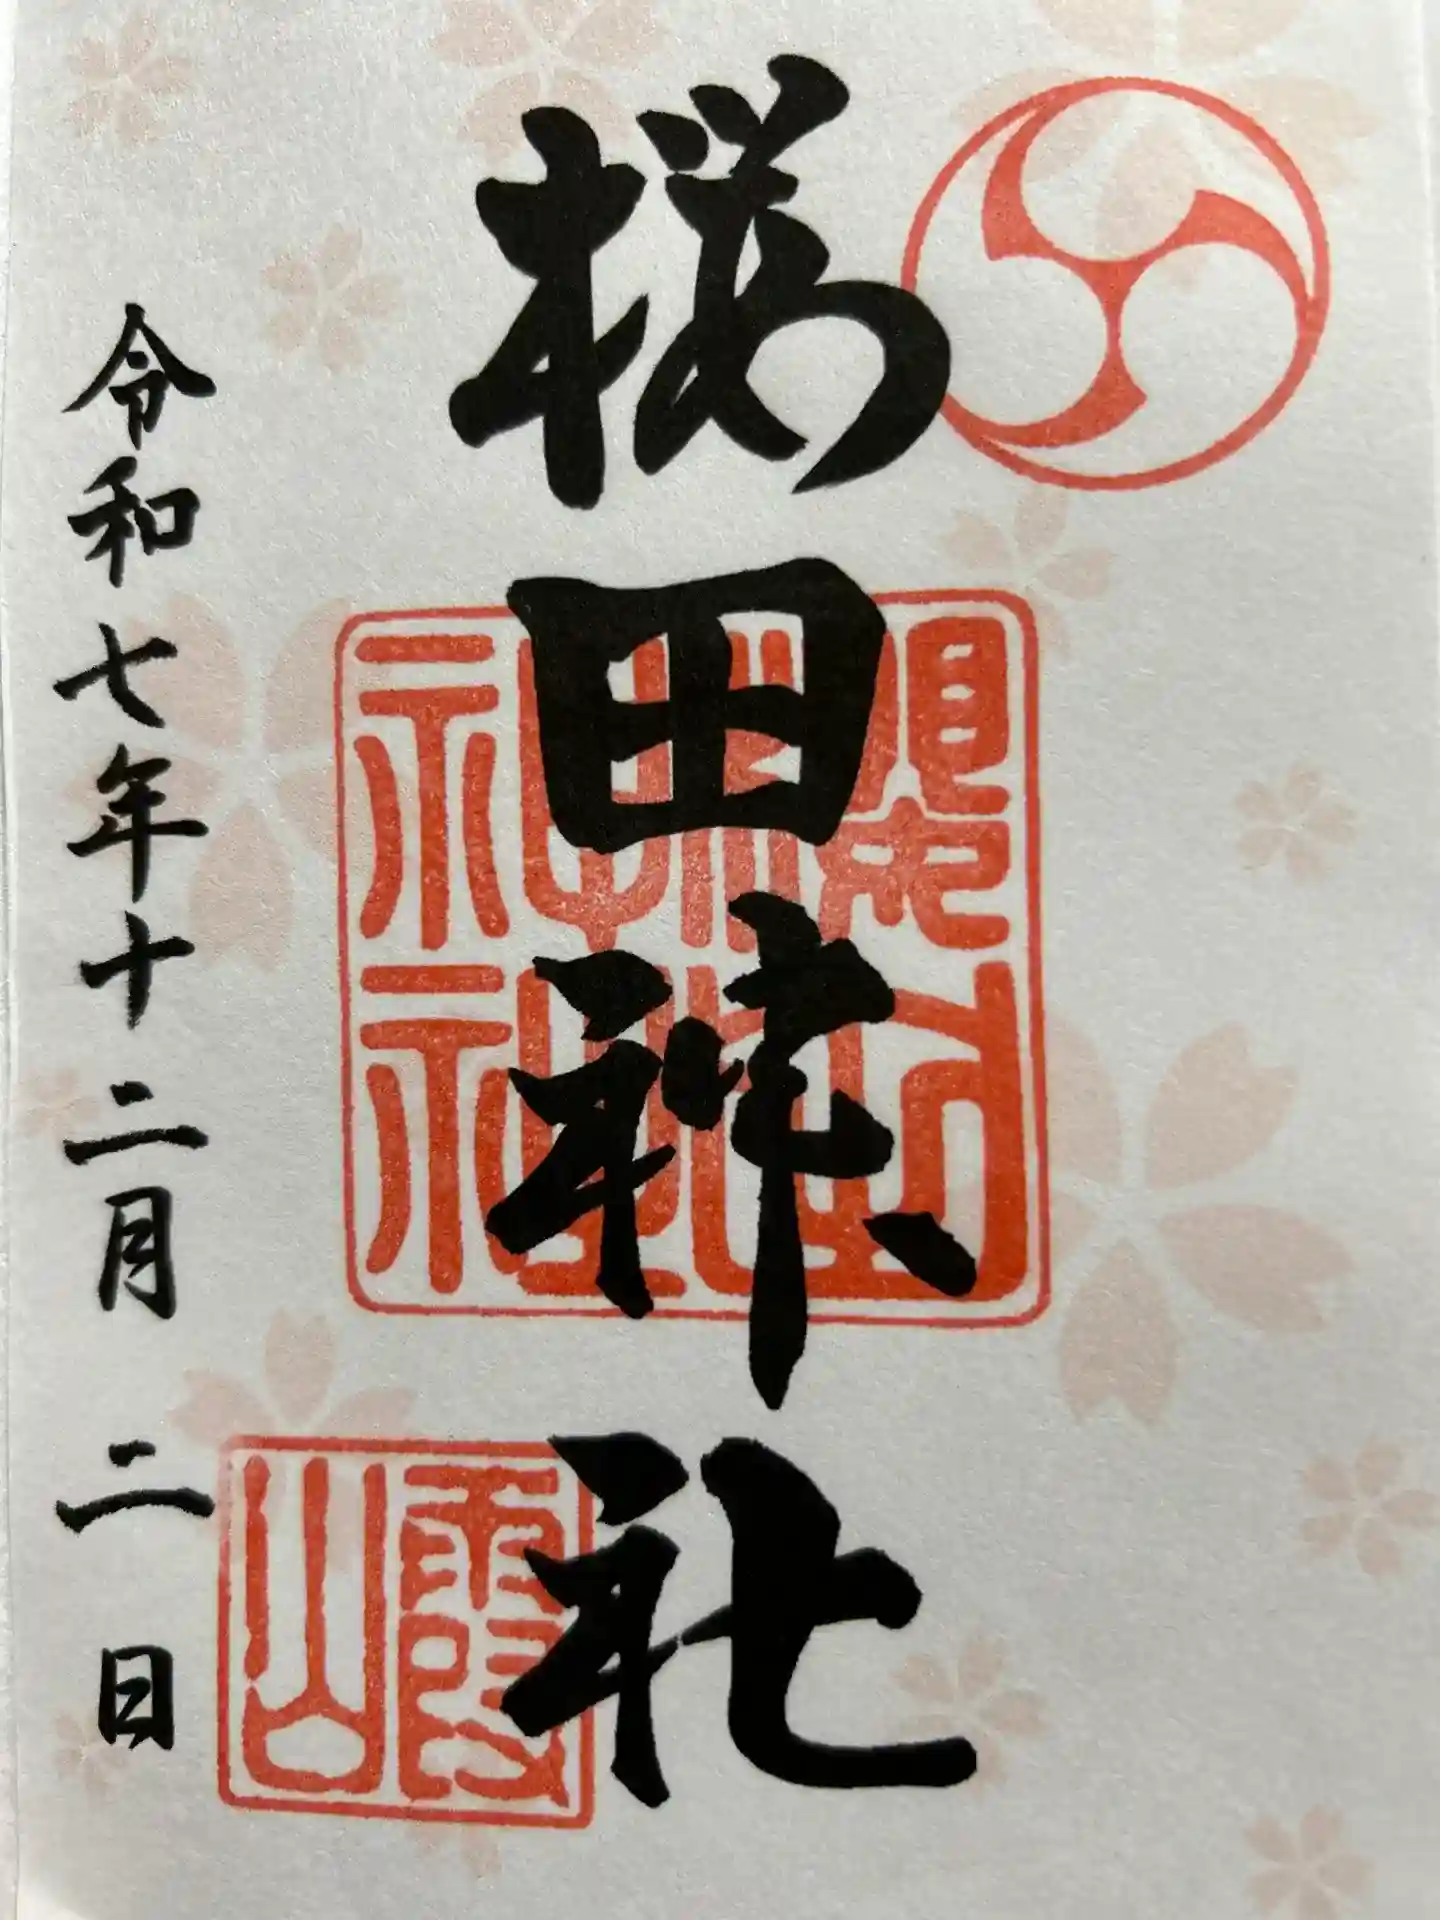 桜田神社
櫻田神社
霞山
令和七年十二月二日